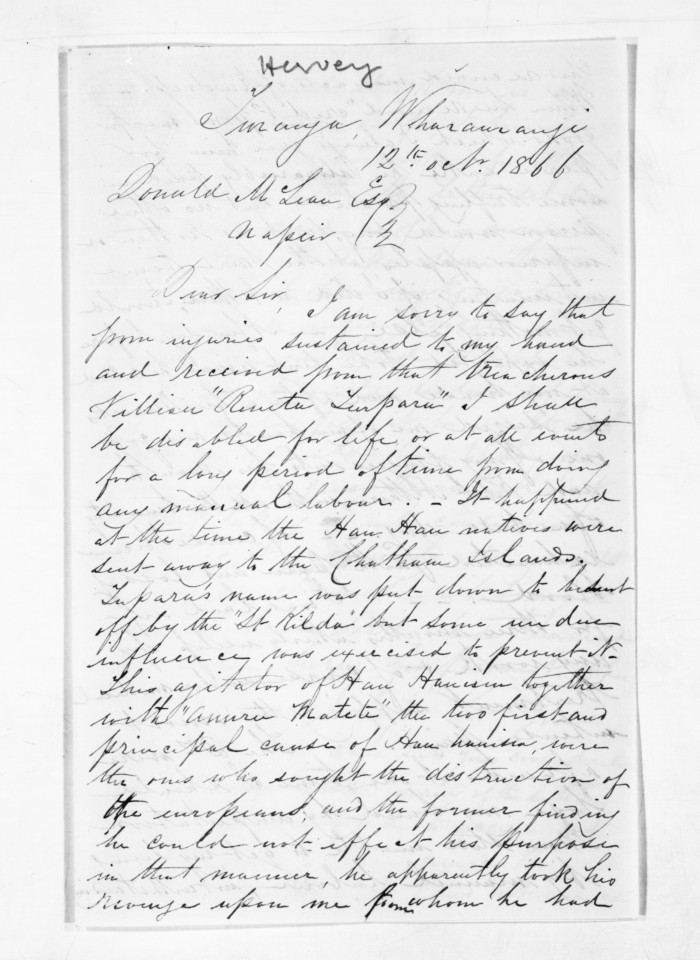 Hervey
Turanga, Wharaurangi
12th Octr. 1866
Donald McLean Esqr
Napier
Dear Sir,
I am sorry to say that
from injuries sustained to my hand
and received from that treacherous
Villian "Reneta Turpara" I shall
be disabled for life or at all events
for a long period of time from doing
any manual labour. - It happened
at the time the Hau Hau natives were
sent away to the Chatham Islands.
Tuparas name was put down to be sent
off by the "St Kilda" but some undue
influence was exercised to prevent it.
This agitator of Hau Hauism together
with "Anuru Matete" the two first and
principal cause of Hau hauism, were
the ones who sought the destruction of
the europeans, and the former finding
he could not effect his purpose
in that manner, he apparently took his
revenge upon me from whom he had